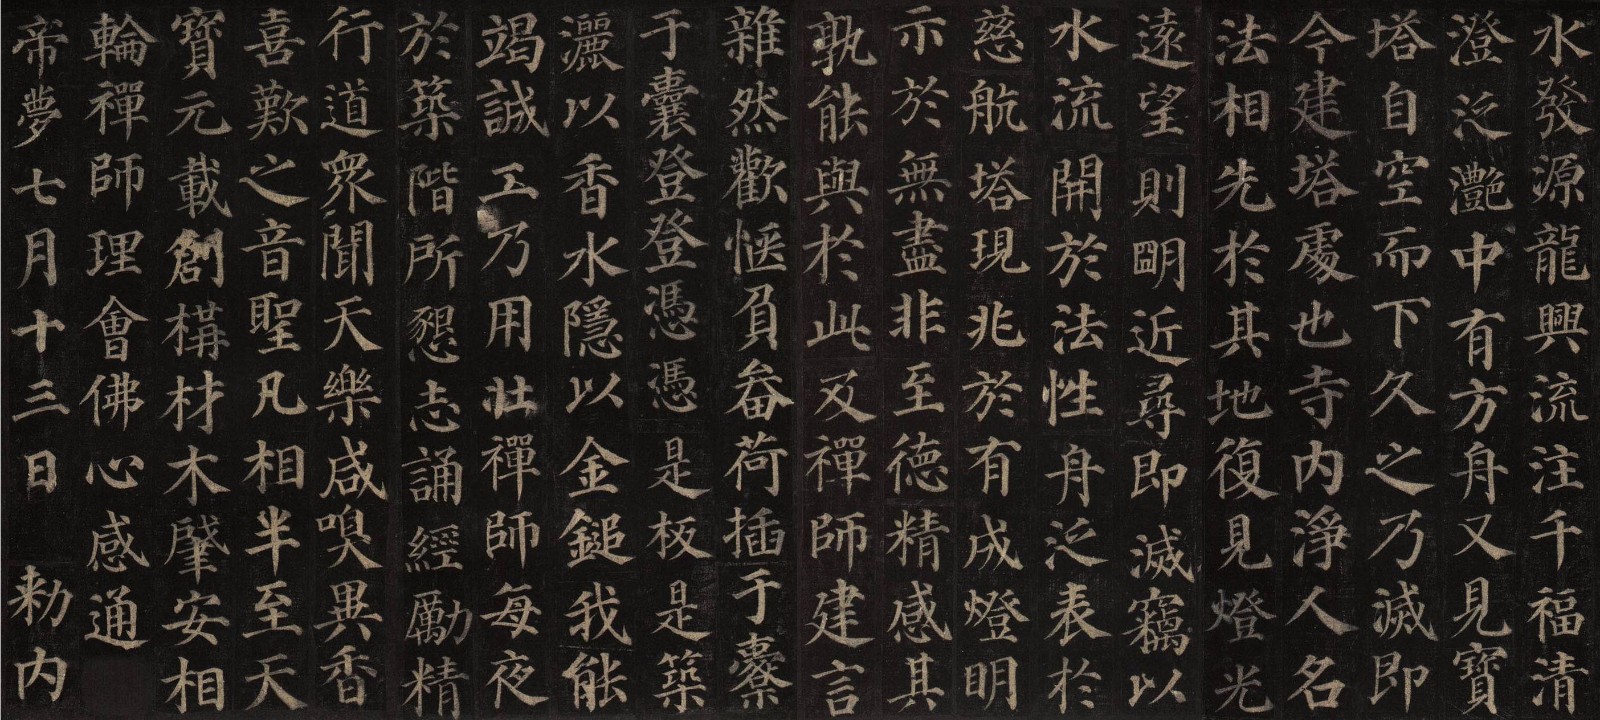 水發源龍興流注千福清
澄泛灔中有方舟又見寶
塔自空而下久之乃滅即
今建塔處也寺内淨人名
法相先於其地復見燈光
遠望則明近尋即滅竊以
水流開於法性舟泛表於
慈航塔現兆於有成燈明
示於無盡非至德精感其
孰能與於此及禪師建言
雜然歡愜負畚荷插于橐
于囊登登憑憑是板是築
灑以香水隱以金鎚我能
竭誠工乃用壯禪師每夜
於築階所懇志誦經勵精
行道衆聞天樂咸嗅異香
喜歎之音聖凡相半至天
寶元載創構材木肇安相
輪禪師理會佛心感通
帝夢七月十三日敕内